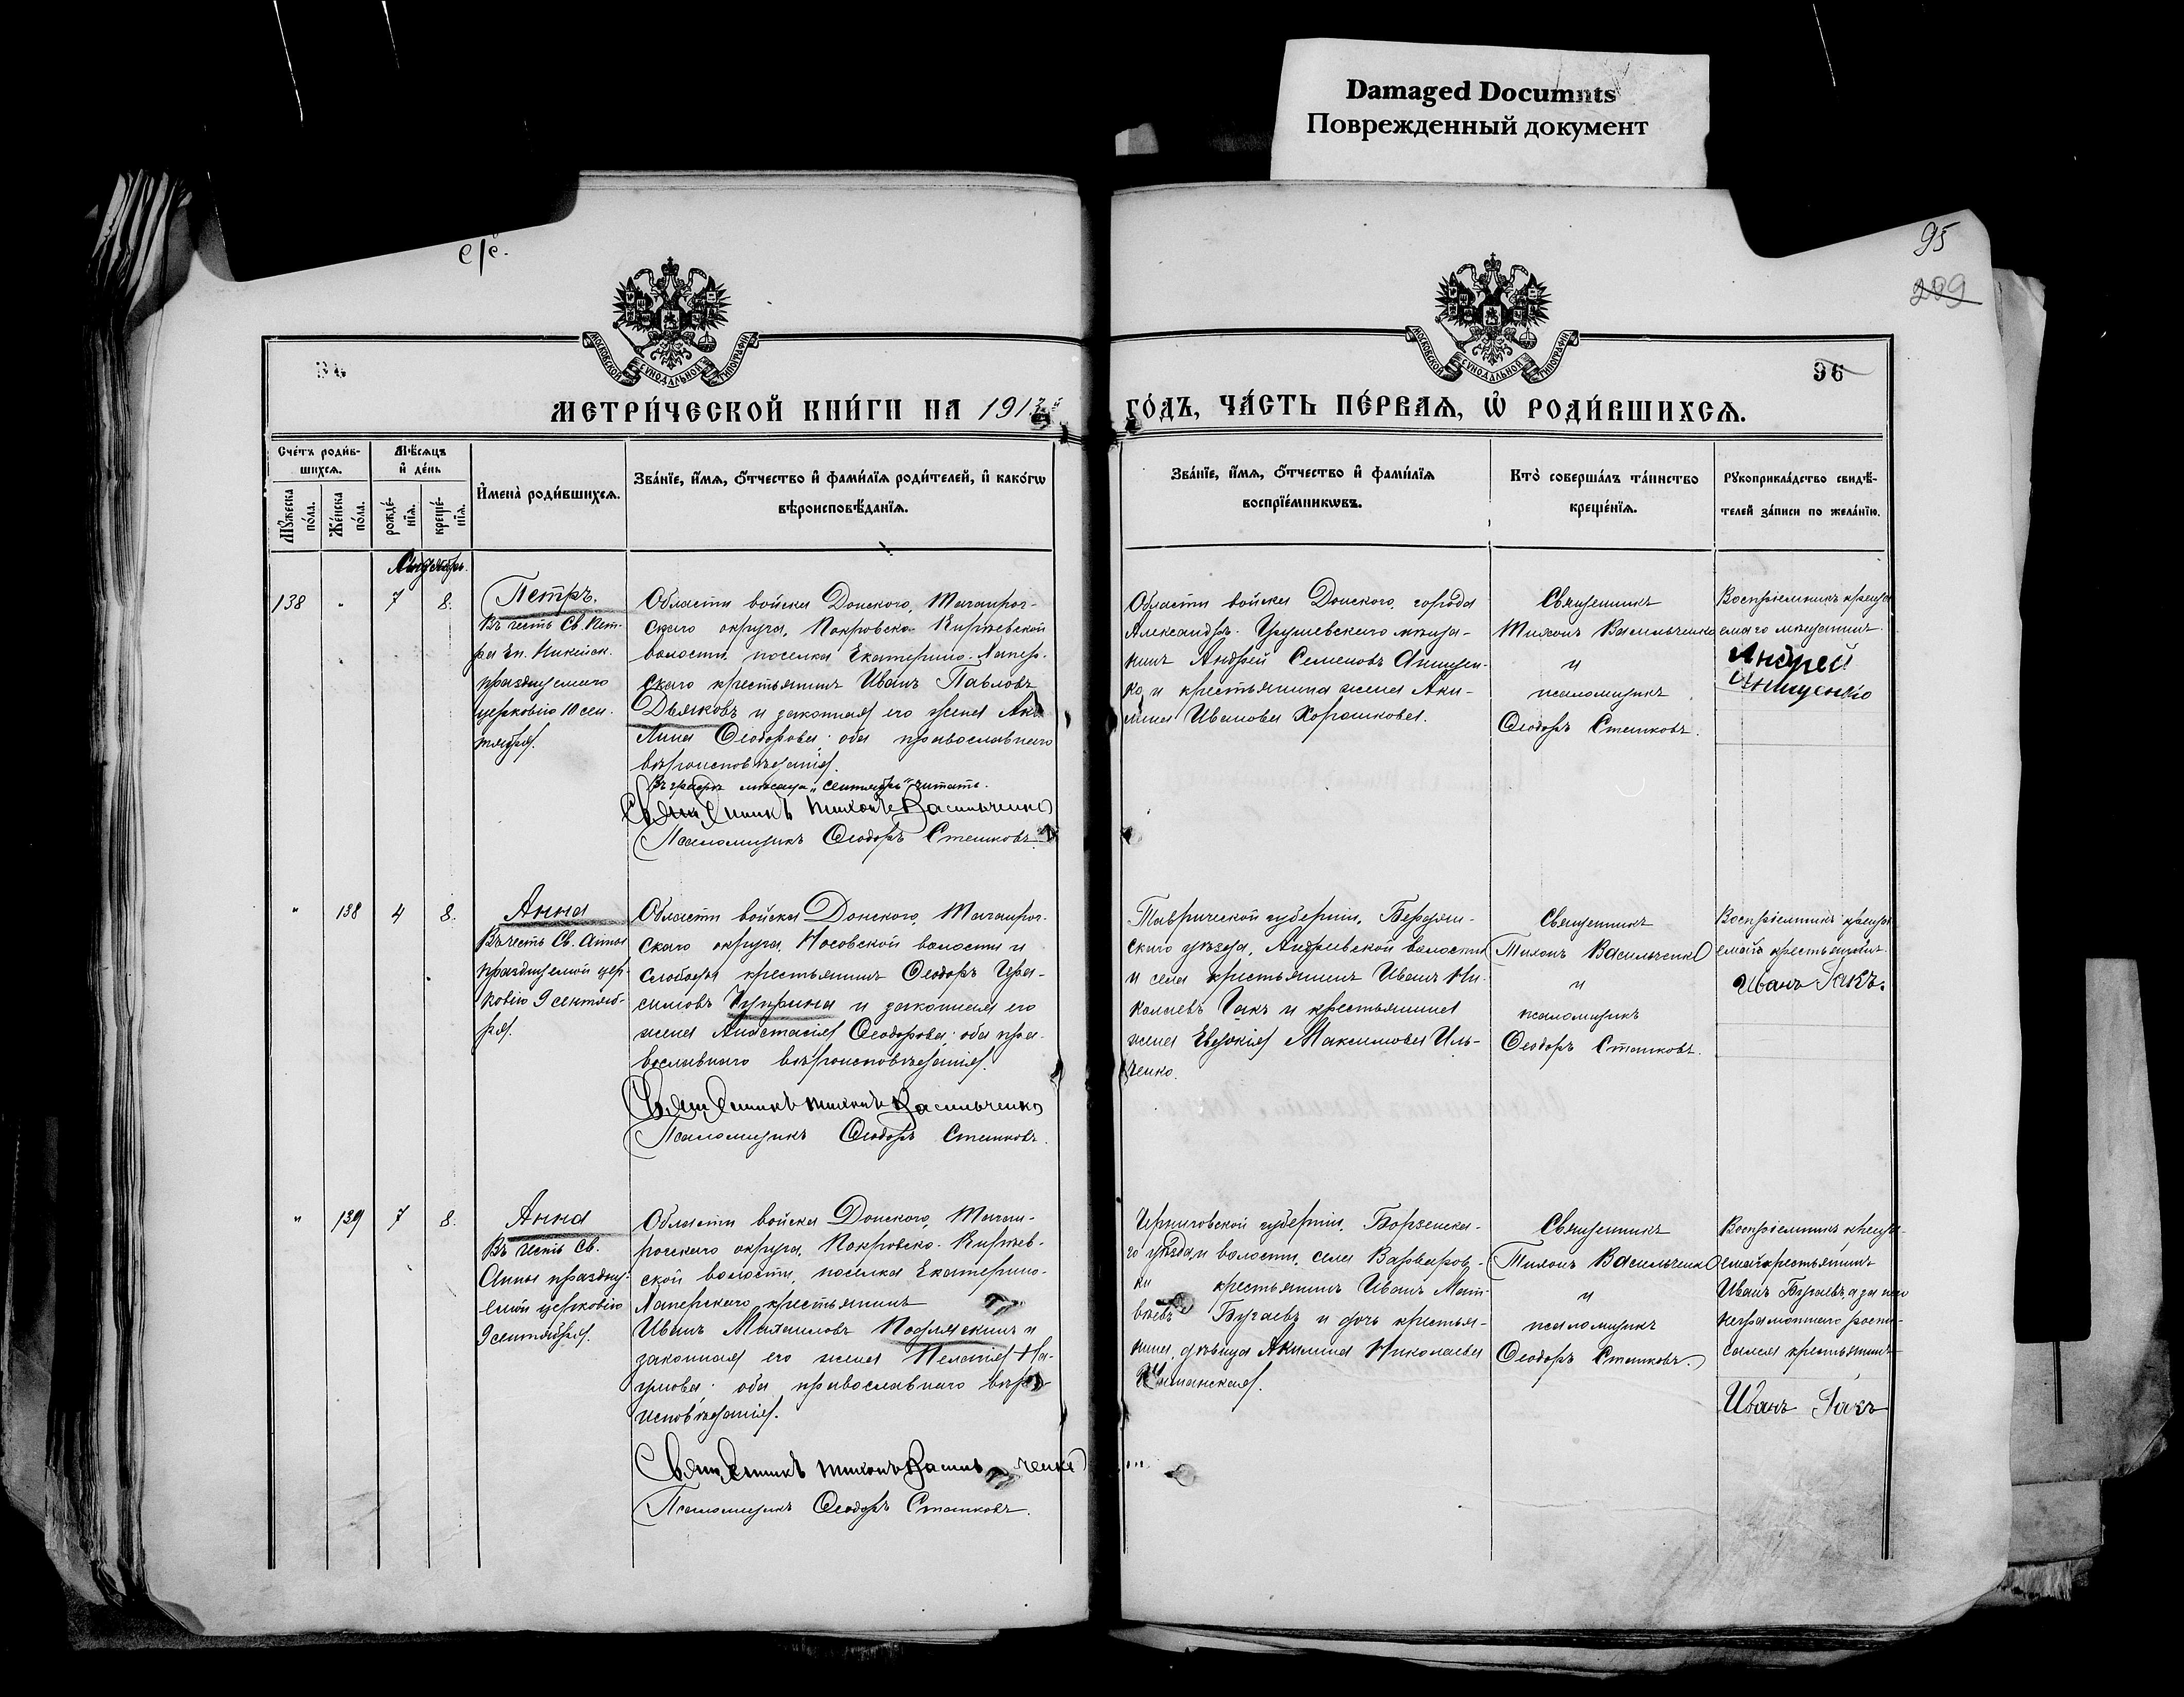 Damaged Documnts
Поврежденный документ
95
209
96
МОСКОВСКОЙ СУНОДАЛЬНОЙ ТИПОГРАФІИ
МОСКОВСКОЙ СУНОДАЛЬНОЙ ТИПОГРАФІИ
МЕТРИ́ЧЕСКОЙ КНИ́ГИ НА 1913
ГО́ДЪ, ЧА́СТЬ ПЕ́РВАѦ, Ѡ РОДИ́ВШИХСѦ.
Счéтъ роди́в-
шихсѧ.
Мꙋ́жеска
по́ла.
Же́нска
по́ла.
Мѣ́сѧцъ
и҆ де́нь
рожде́-
нїѧ.
креще́-
нїѧ.
И҆мена̀ роди́вшихсѧ.
Зва́нїе, и҆́мѧ, ѻ҆́тчество и҆ фами́лїѧ роди́телей, и҆ како́гѡ
вѣроисповѣ́данїѧ.
Зва́нїе, и҆́мѧ, ѻ҆́тчество и҆ фами́лїѧ
воспрїе́мникѡвъ.
Кто̀ соверша́лъ та́инство
креще́нїѧ.
Рꙋкоприкла́дство свидѣ́-
телей за́писи по жела́нїю.
138 " 7 8.
Петръ.
Въ честь Св. Пет-
ра Еп. Никейск.
празднуемаго
церковію 10 сен-
тября.
Области войска Донского, Таганрог-
скаго округа, Покровско-Кирѣевской
волости, поселка Екатерино-Хапер-
скаго крестьянинъ Иванъ Павловъ
Дьяковъ и законная его жена Аки-
лина Ѳеодорова; оба православнаго
вѣроисповѣданія.
Въ графѣ мѣсяца "сентябрь" читать.
Священникъ Тихонъ Васильченко
Псаломщикъ Ѳеодоръ Стешковъ.
Области войска Донского, города
Александръ-Грушевскаго мѣща-
нинъ Андрей Семеновъ Онищен-
ко и крестьянина жена Аки-
лина Иванова Хорошкова.
Священникъ
Тихонъ Васильченко
и
псаломщикъ
Ѳеодоръ Стешковъ.
Воспріемникъ креща-
емаго мѣщанинъ
Андрей
Онищенко
" 138 4 8.
Анна
Въ честь Св. Анны
празднуемой цер-
ковію 9 сентяб-
ря.
Области войска Донского, Таганрог-
скаго округа, Носовской волости и
слободы крестьянинъ Ѳеодоръ Гера-
симовъ Чуприна и законная его
жена Анастасія Ѳеодорова; оба пра-
вославнаго вѣроисповѣданія.
Священникъ Тихонъ Васильченко
Псаломщикъ Ѳеодоръ Стешковъ.
Таврической губерніи, Бердян-
скаго уѣзда, Андреевской волости
и села крестьянинъ Иванъ Ни-
колаевъ Гакъ и крестьянина
жена Евдокія Максимова Иль-
ченко.
Священникъ
Тихонъ Васильченко
и
псаломщикъ
Ѳеодоръ Стешковъ.
Воспріемникъ креща-
емой крестьянинъ
Иванъ Гакъ.
" 139 7 8.
Анна
Въ честь Св.
Анны праздну-
емой церковію
9 сентября.
Области войска Донского, Таган-
рогскаго округа, Покровско-Кирѣев-
ской волости, поселка Екатерино-
Хаперскаго крестьянинъ
Иванъ Михаиловъ Подлясkинъ и
законная его жена Пелагія На-
умова; оба православнаго вѣро-
исповѣданія.
Священникъ Тихонъ Васильченко
Псаломщикъ Ѳеодоръ Стешковъ.
Черниговской губерніи, Борзенска-
го уѣзда и волости, села Варваров-
ки крестьянинъ Иванъ Мат-
вѣевъ Бугаевъ и дочь крестья-
нина, дѣвица Акилина Николаева
Священникъ
Тихонъ Васильченко
и
псаломщикъ
Ѳеодоръ Стешковъ.
Воспріемникъ креща-
емой крестьянинъ
Иванъ Бугаевъ, а за него
неграмотнаго роспи-
сался крестьянинъ
Иванъ Гакъ